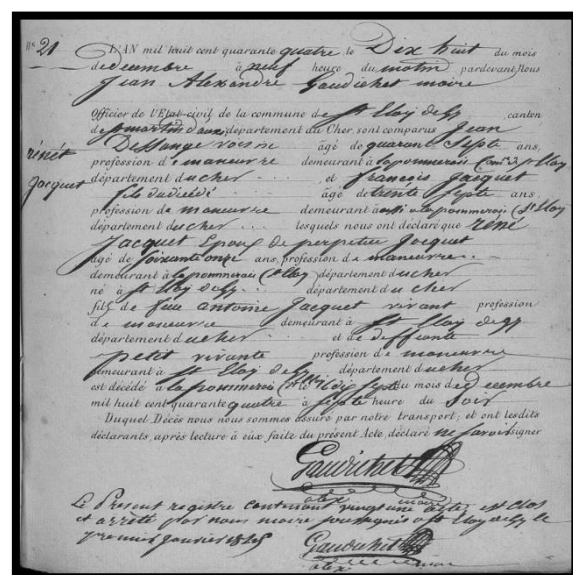 N° 21
L'AN mil huit cent quarante quatre, le Dix huit du mois
de decembre à neuf heure du matin pardevant Nous
Jean Alexandre Gaudichet maire
Officier de l'Etat-civil de la commune de St Eloy de Gy canton
de St martin d'auxi département du Cher, sont comparus Jean
Dessange voisin âgé de quarante Septe ans,
profession de maneuvre demeurant à la pommerais Cone de St Eloy
département du cher et françois Jacquet
fils du décédé âgé de trente Septe ans,
profession de maneuvre demeurant à la pommerais (St Eloy
département du cher lesquels nous ont déclaré que réné
Jacquet Epoux de perpetue Jacquet
âgé de Soixante onze ans, profession de maneuvre
demeurant à la pommerais (St Eloy) département du cher
né à St Eloy de Gy département du cher
fils de feu antoine Jacquet vivant profession
de maneuvre demeurant à St Eloy de Gy
département du cher et de deffunte
petit vivante profession de maneuvre
demeurant à St Eloy de Gy département du cher
est décédé à la pommerais le dix Septe du mois de Decembre
mil huit cent quarante quatre à Septe heure du Soir
Duquel Décès nous nous sommes assuré par notre transport; et ont lesdits
déclarants, après lecture à eux faite du présent Acte, déclaré ne Savoir signer
réné
Jacquet
Gaudichet
alex maire
Le Present registre contenant vingt une acte, est clos
et arreté par nous maire soussignés a St Eloy de Gy le
premier Janvier 1845
Gaudichet
alex maire